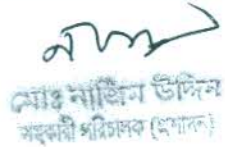 মোঃ নাজিম উদ্দিন
সহকারী পরিচালক (প্রশাসন)